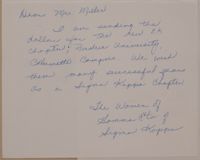 Dear Mrs. Miller
I am sending the
dollar for the new
chapter, Purdue University,
Calumet Campus. We wish
them many successful years
as a Sigma Kappa Chapter
The Women of
Gamma of
Sigma Kappa